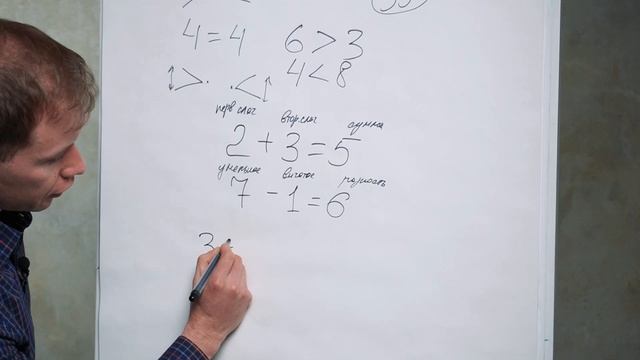 4 = 4 6 > 3
> . . < 4 < 8
перв слаг втор слаг сумма
2 + 3 = 5
разность
7 - 1 = 6
3